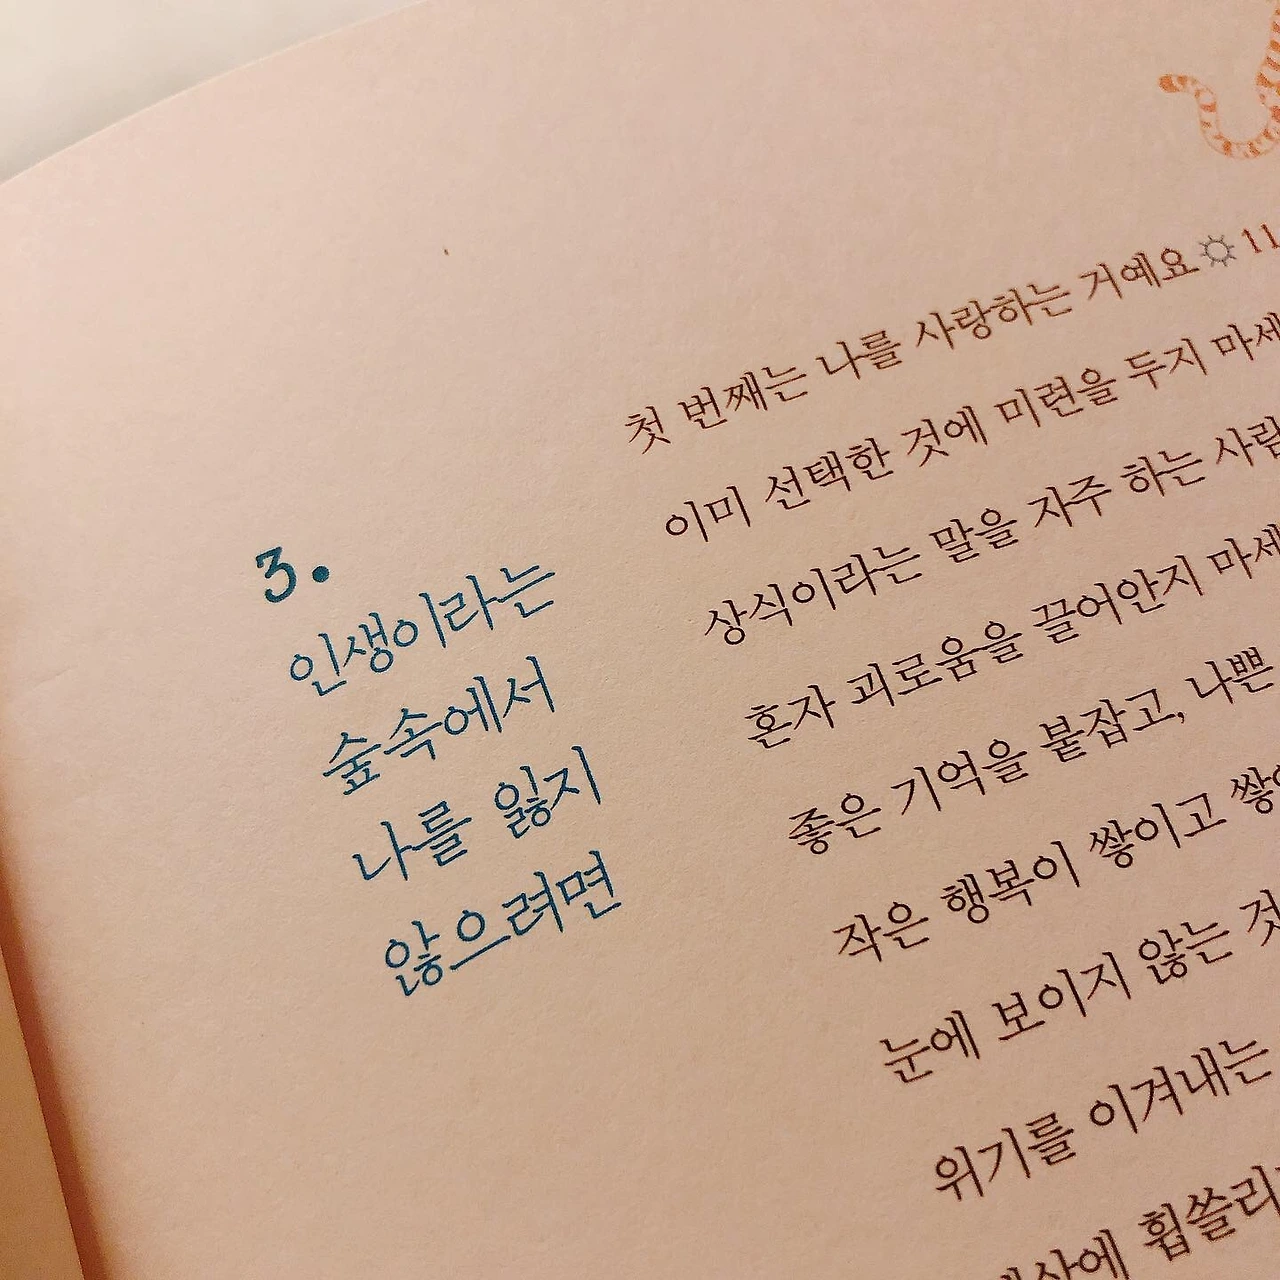 3.
인생이라는
숲속에서
나를 잃지
않으려면
첫 번째는 나를 사랑하는 거예요
이미 선택한 것에 미련을 두지
상식이라는 말을 자주 하는
혼자 괴로움을 끌어안지
좋은 기억을 붙잡고, 나쁜
작은 행복이 쌓이고
눈에 보이지 않는
위기를 이겨내는